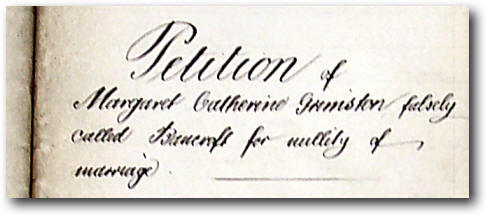 Petition of
Margaret Catherine Ormiston falsely
called Bancroft for nullity of
marriage.